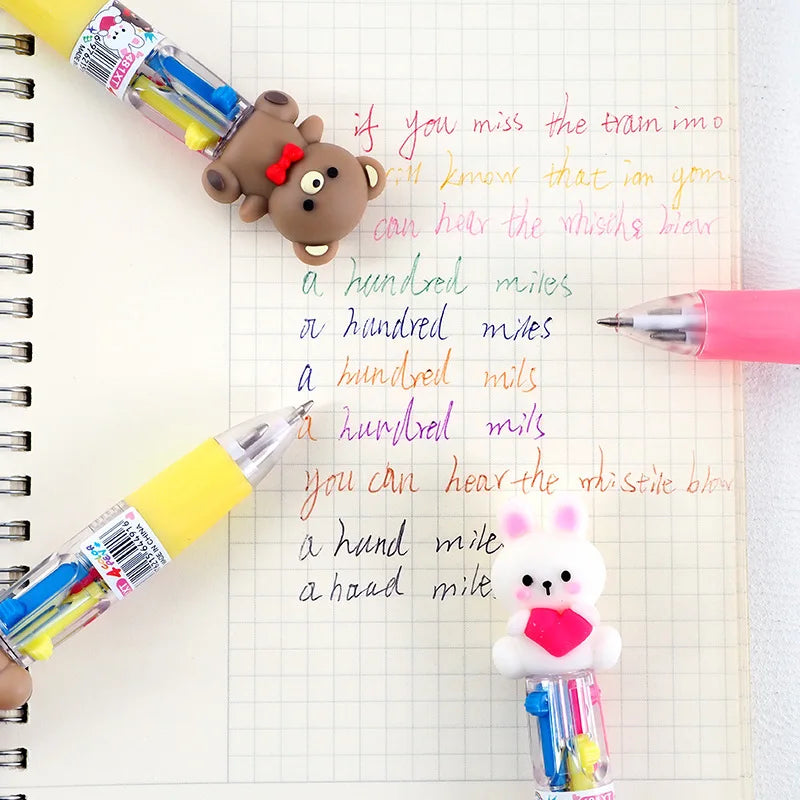 if you miss the train imo
ill know that iam gom
can hear the whischs blow
a hundred miles
a hundred miles
a hundred mils
a hundred mils
you can hear the whistile blow
a hund mile
a haad mile
481XT
4 COLOR PEN
MADE IN CHINA